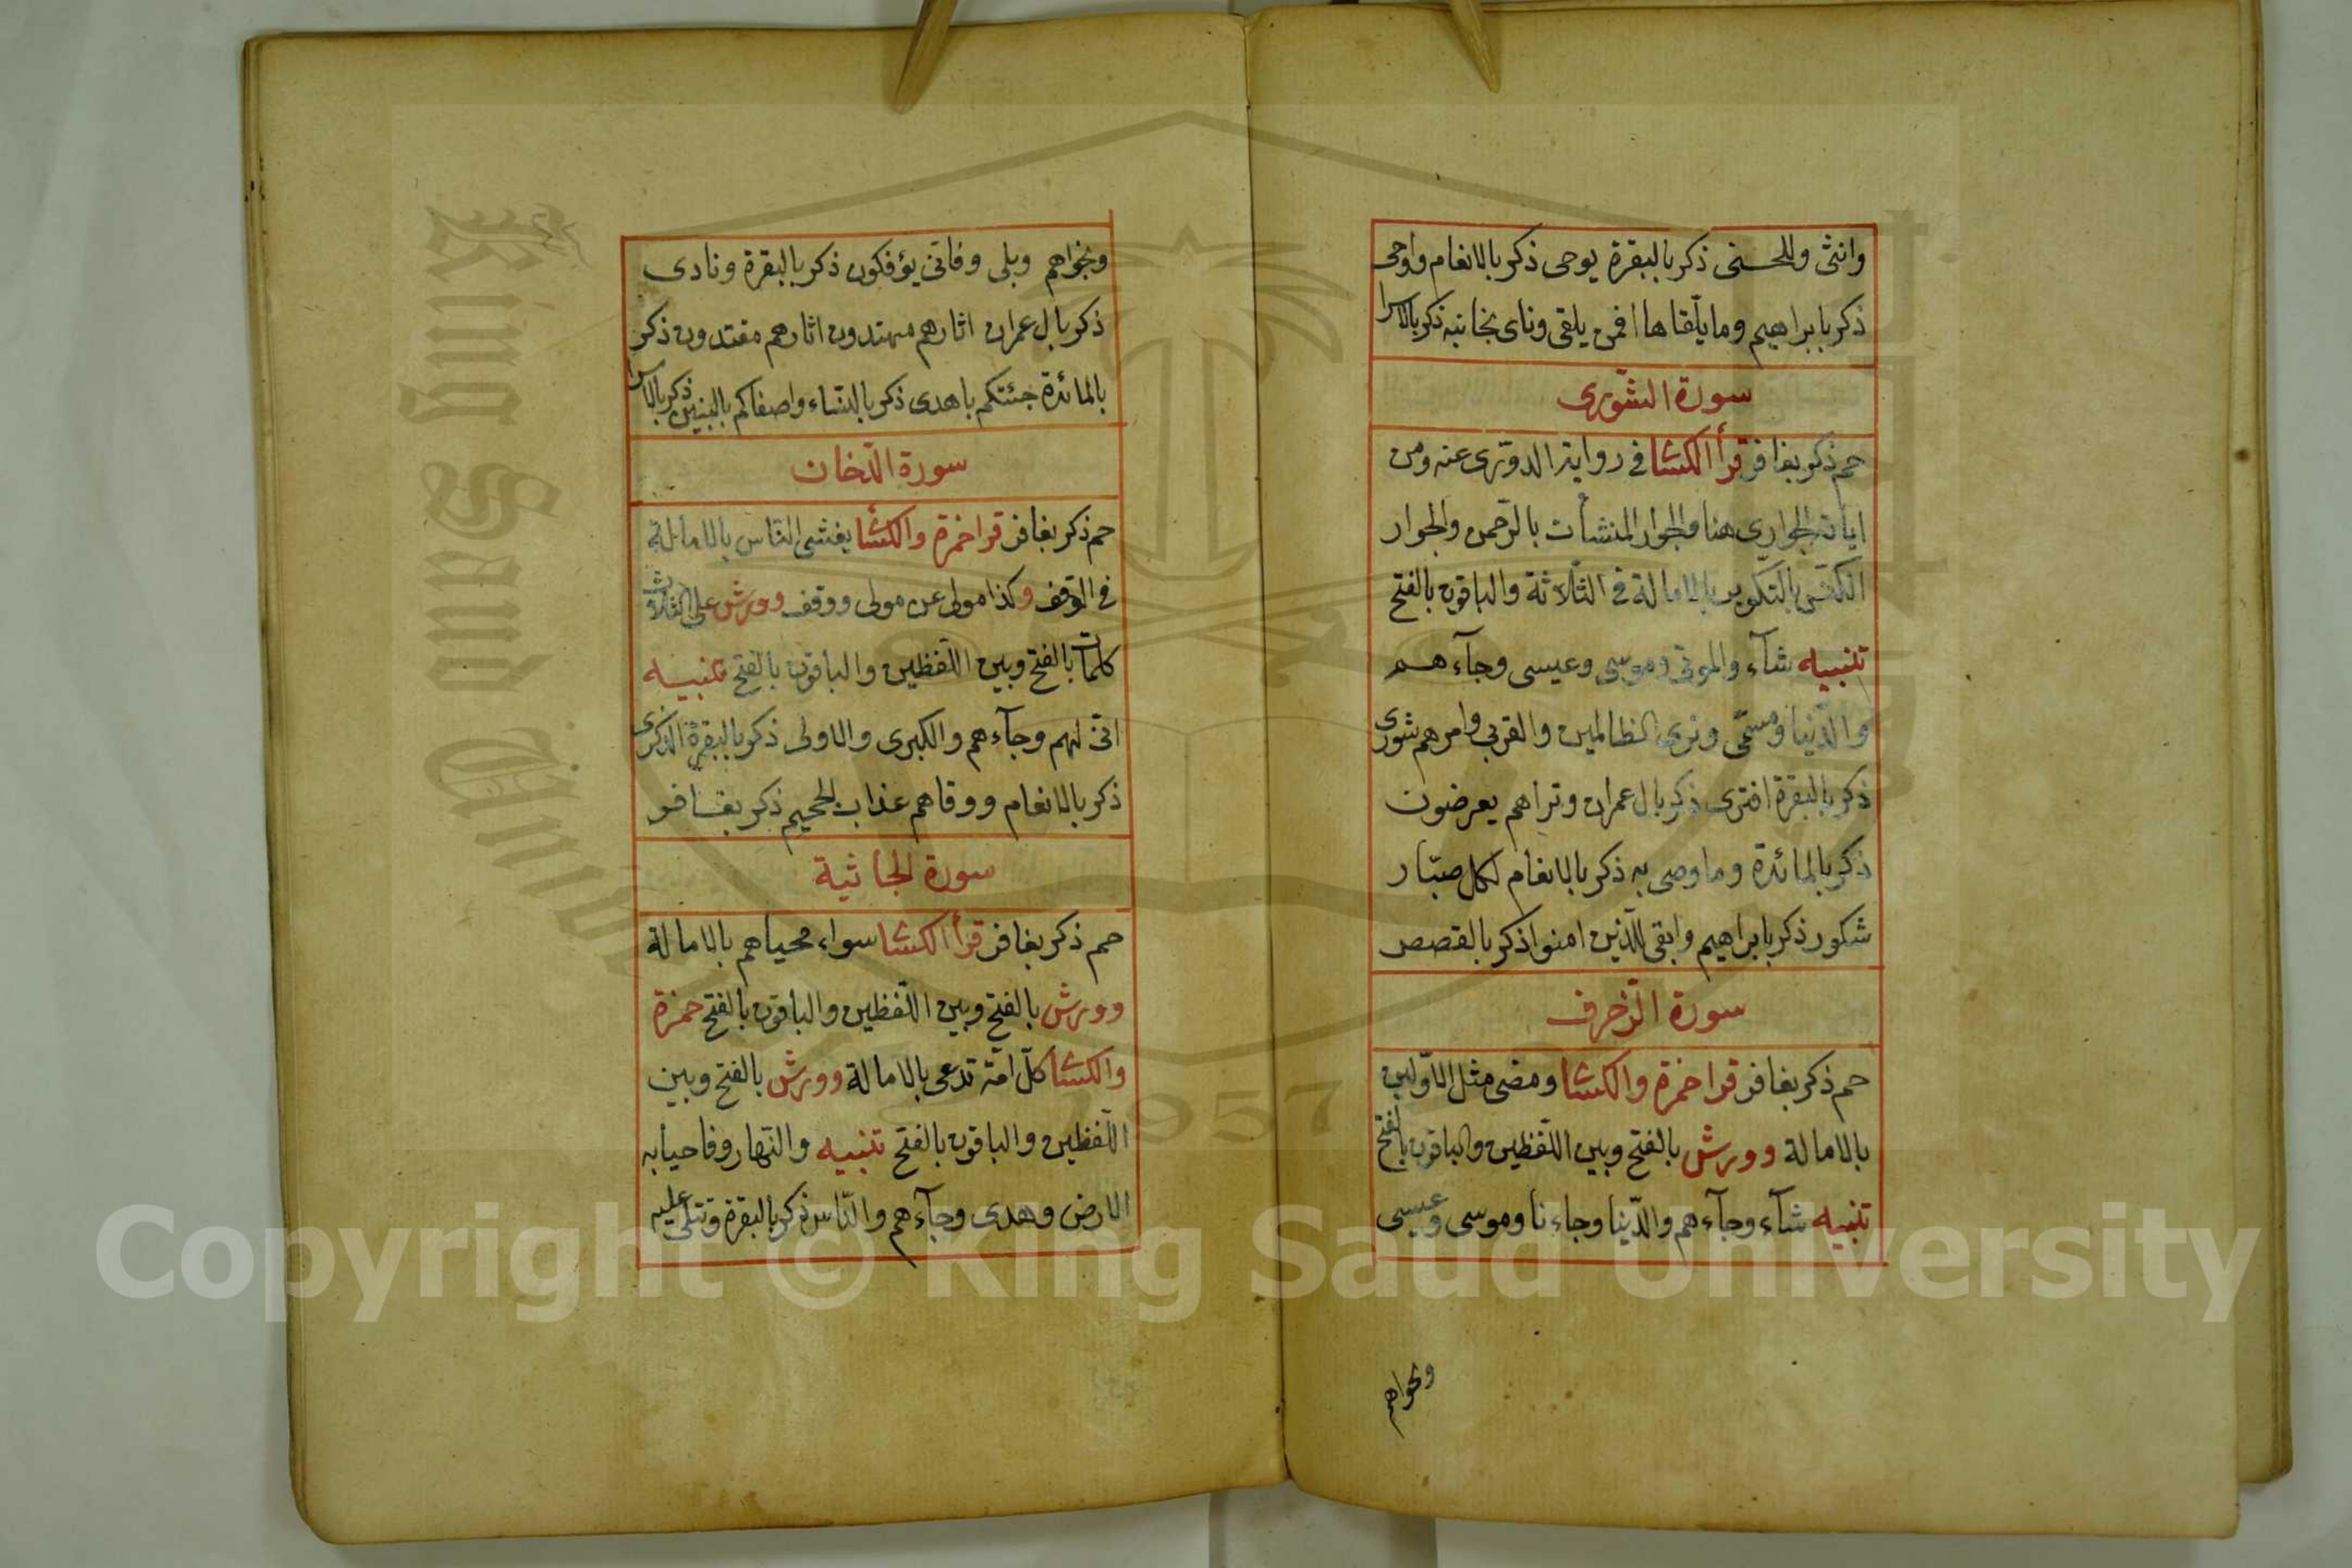 وانثى وللحسنى ذكر بالبقرة يوحى ذكر بالانعام واوحى
ذكر بابراهيم وما يلقاها افمن يلقى وناى بجانبه ذكر بالاسرا
سورة الشّورى
حم ذكر بغافر قرأ الكسا فى رواية الدورى عنه ومن
اياته الجوارى هنا والجوار المنشأت بالرّحمن والجوار
الكنّس بالتّكوير بالامالة فى الثّلاثة والباقون بالفتح
تنبيه شآء والموتى وموسى وعيسى وجآءهم
والدّنيا ومسمّى وترى الظالمين والقربى وامرهم شورى
ذكر بالبقرة افترى ذكر بال عمران وتراهم يعرضون
ذكر بالمائدة وما وصى به ذكر بالانعام لكل صبّار
شكور ذكر بابراهيم وابقى للّذين امنوا ذكر بالقصص
سورة الزّخرف
حم ذكر بغافر قرا حمزة والكسا ومضى مثل الاوّلين
بالامالة وورش بالفتح وبين اللّفظين والباقون بالفتح
تنبيه شآء وجآءهم والدّنيا وجاءنا وموسى وعيسى
ونجواهم
ونجواهم وبلى وفانى يؤفكون ذكر بالبقرة ونادى
ذكر بال عمران اثارهم مهتدون اثارهم مقتدون ذكر
بالمائدة جئتكم باهدى ذكر بالنساء واصفاكم بالبنين ذكر بالاسرا
سورة الدّخان
حم ذكر بغافر قرا حمزة والكسا يغشى النّاس بالامالة
فى الوقف وكذا مولى عن مولى ووقف وورش على الثلاث
كلمات بالفتح وبين اللّفظين والباقون بالفتح تنبيه
انى لهم وجآءهم والكبرى والاولى ذكر بالبقرة الذكرى
ذكر بالانعام ووقاهم عذاب الجحيم ذكر بغافر
سورة الجاثية
حم ذكر بغافر قرأ الكسا سواء محياهم بالامالة
وورش بالفتح وبين اللّفظين والباقون بالفتح حمزة
والكسا كلّ امّة تدعى بالامالة وورش بالفتح وبين
اللّفظين والباقون بالفتح تنبيه والنّهار وفاحيا به
الارض وهدى وجآءهم والنّاس ذكر بالبقرة وتتلى عليه
Copyright © King Saud University
1957